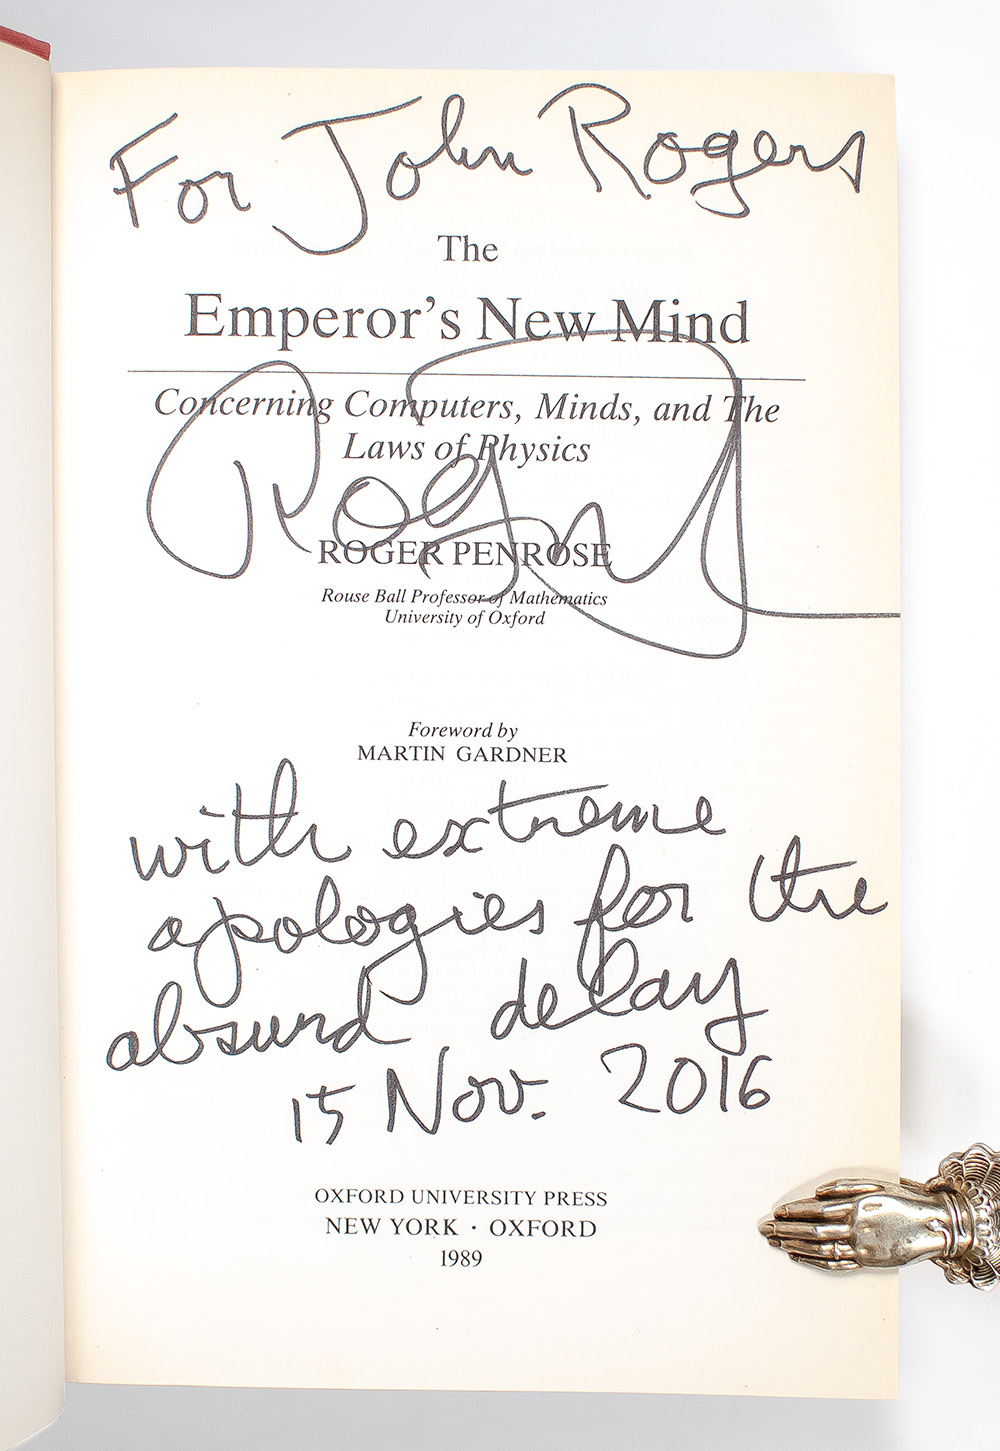 For John Rogers
The
Emperor's New Mind
Concerning Computers, Minds, and The
Laws of Physics
ROGER PENROSE
Rouse Ball Professor of Mathematics
University of Oxford
Foreword by
MARTIN GARDNER
with extreme
apologies for the
absurd delay
15 Nov. 2016
OXFORD UNIVERSITY PRESS
NEW YORK · OXFORD
1989